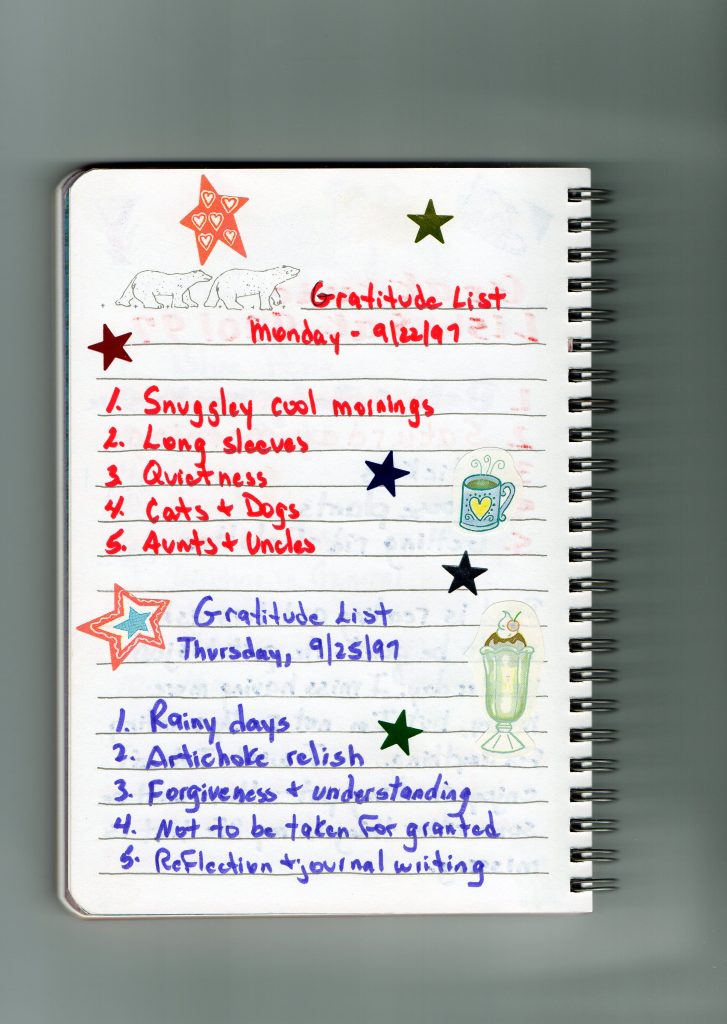 Gratitude List
Monday - 9/22/97
1. Snuggley cool mornings
2. Long sleeves
3. Quietness
4. Cats + Dogs
5. Aunts + Uncles
Gratitude List
Thursday, 9/25/97
1. Rainy days
2. Artichoke relish
3. Forgiveness + understanding
4. Not to be taken for granted
5. Reflection + journal writing